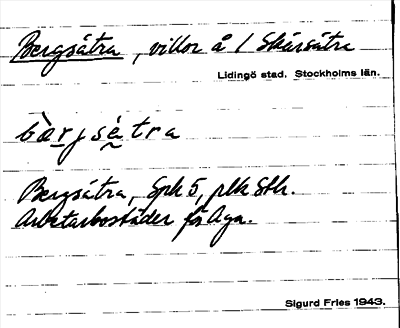 Bergsätra, villor å 1 Skärsätra
Lidingö stad. Stockholms län.
bàrjsètra
Bergsätra, Spk 5, plk Sth.
Arbetarbostäder för Aga.
Sigurd Fries 1943.